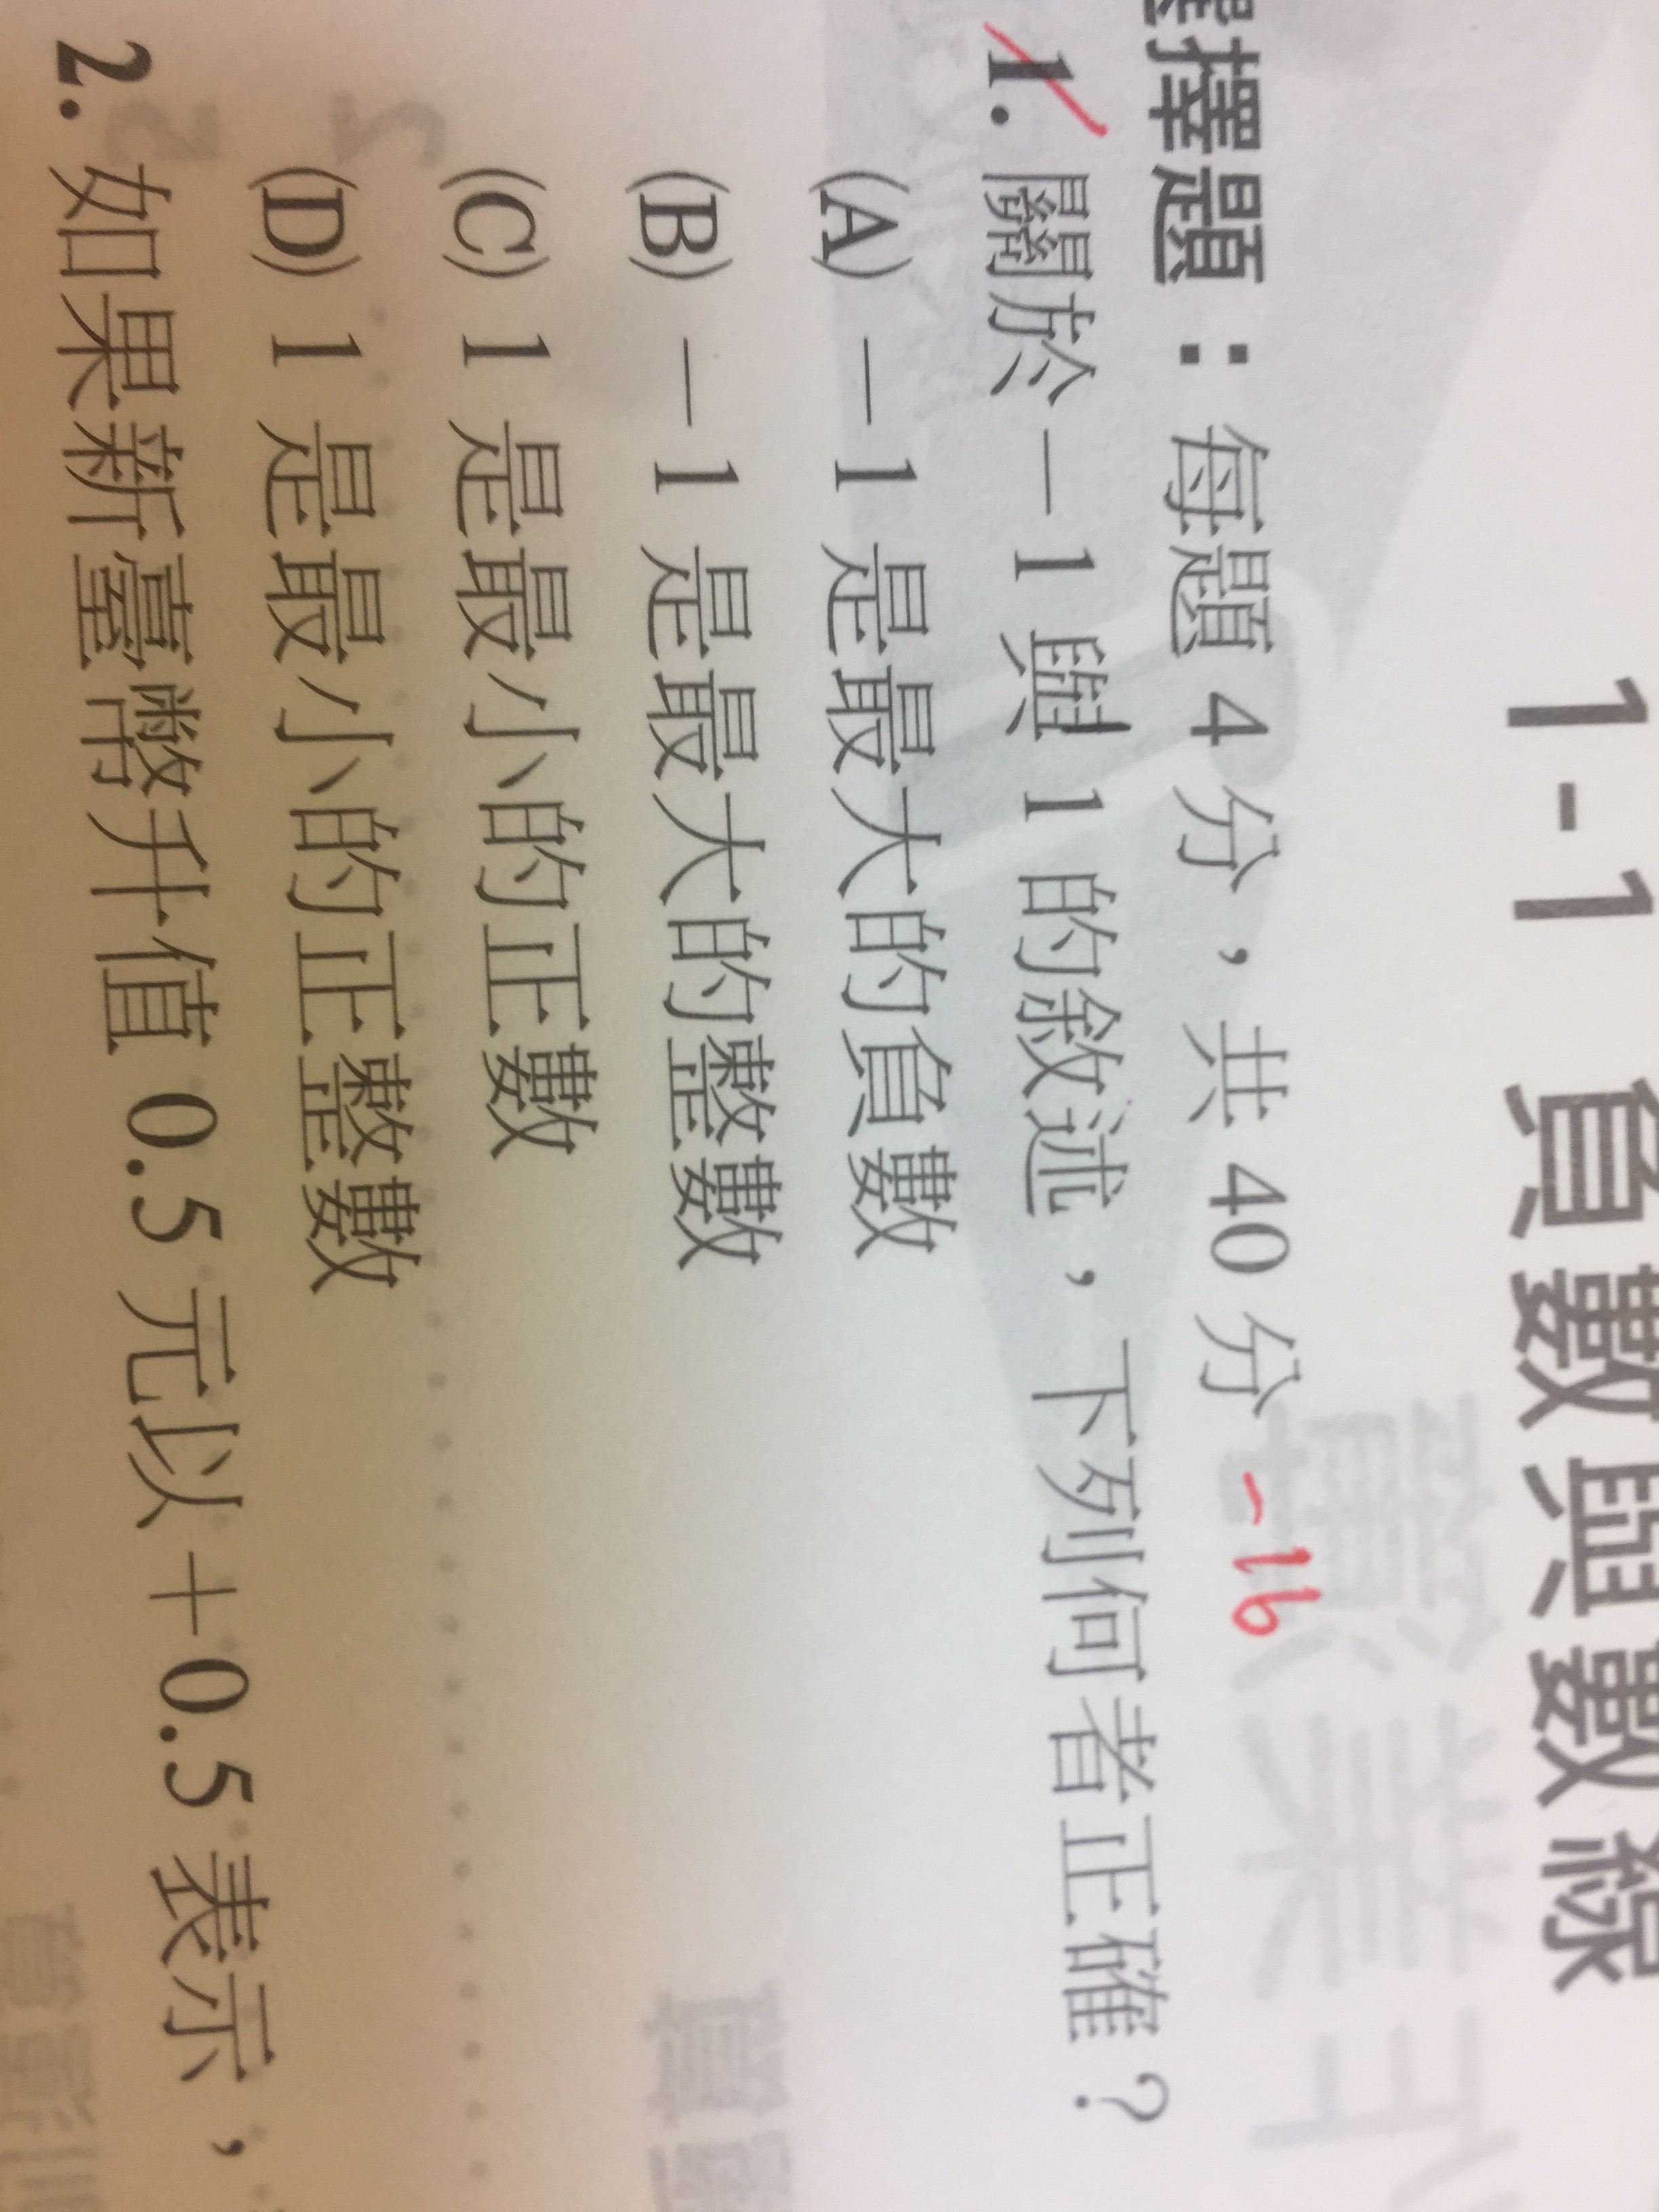 1-1 負數與數線
擇題：每題 4 分，共 40 分 -16
1. 關於－1 與 1 的敘述，下列何者正確？
(A) －1 是最大的負數
(B) －1 是最大的整數
(C) 1 是最小的正數
(D) 1 是最小的正整數
2. 如果新臺幣升值 0.5 元以＋0.5 表示，